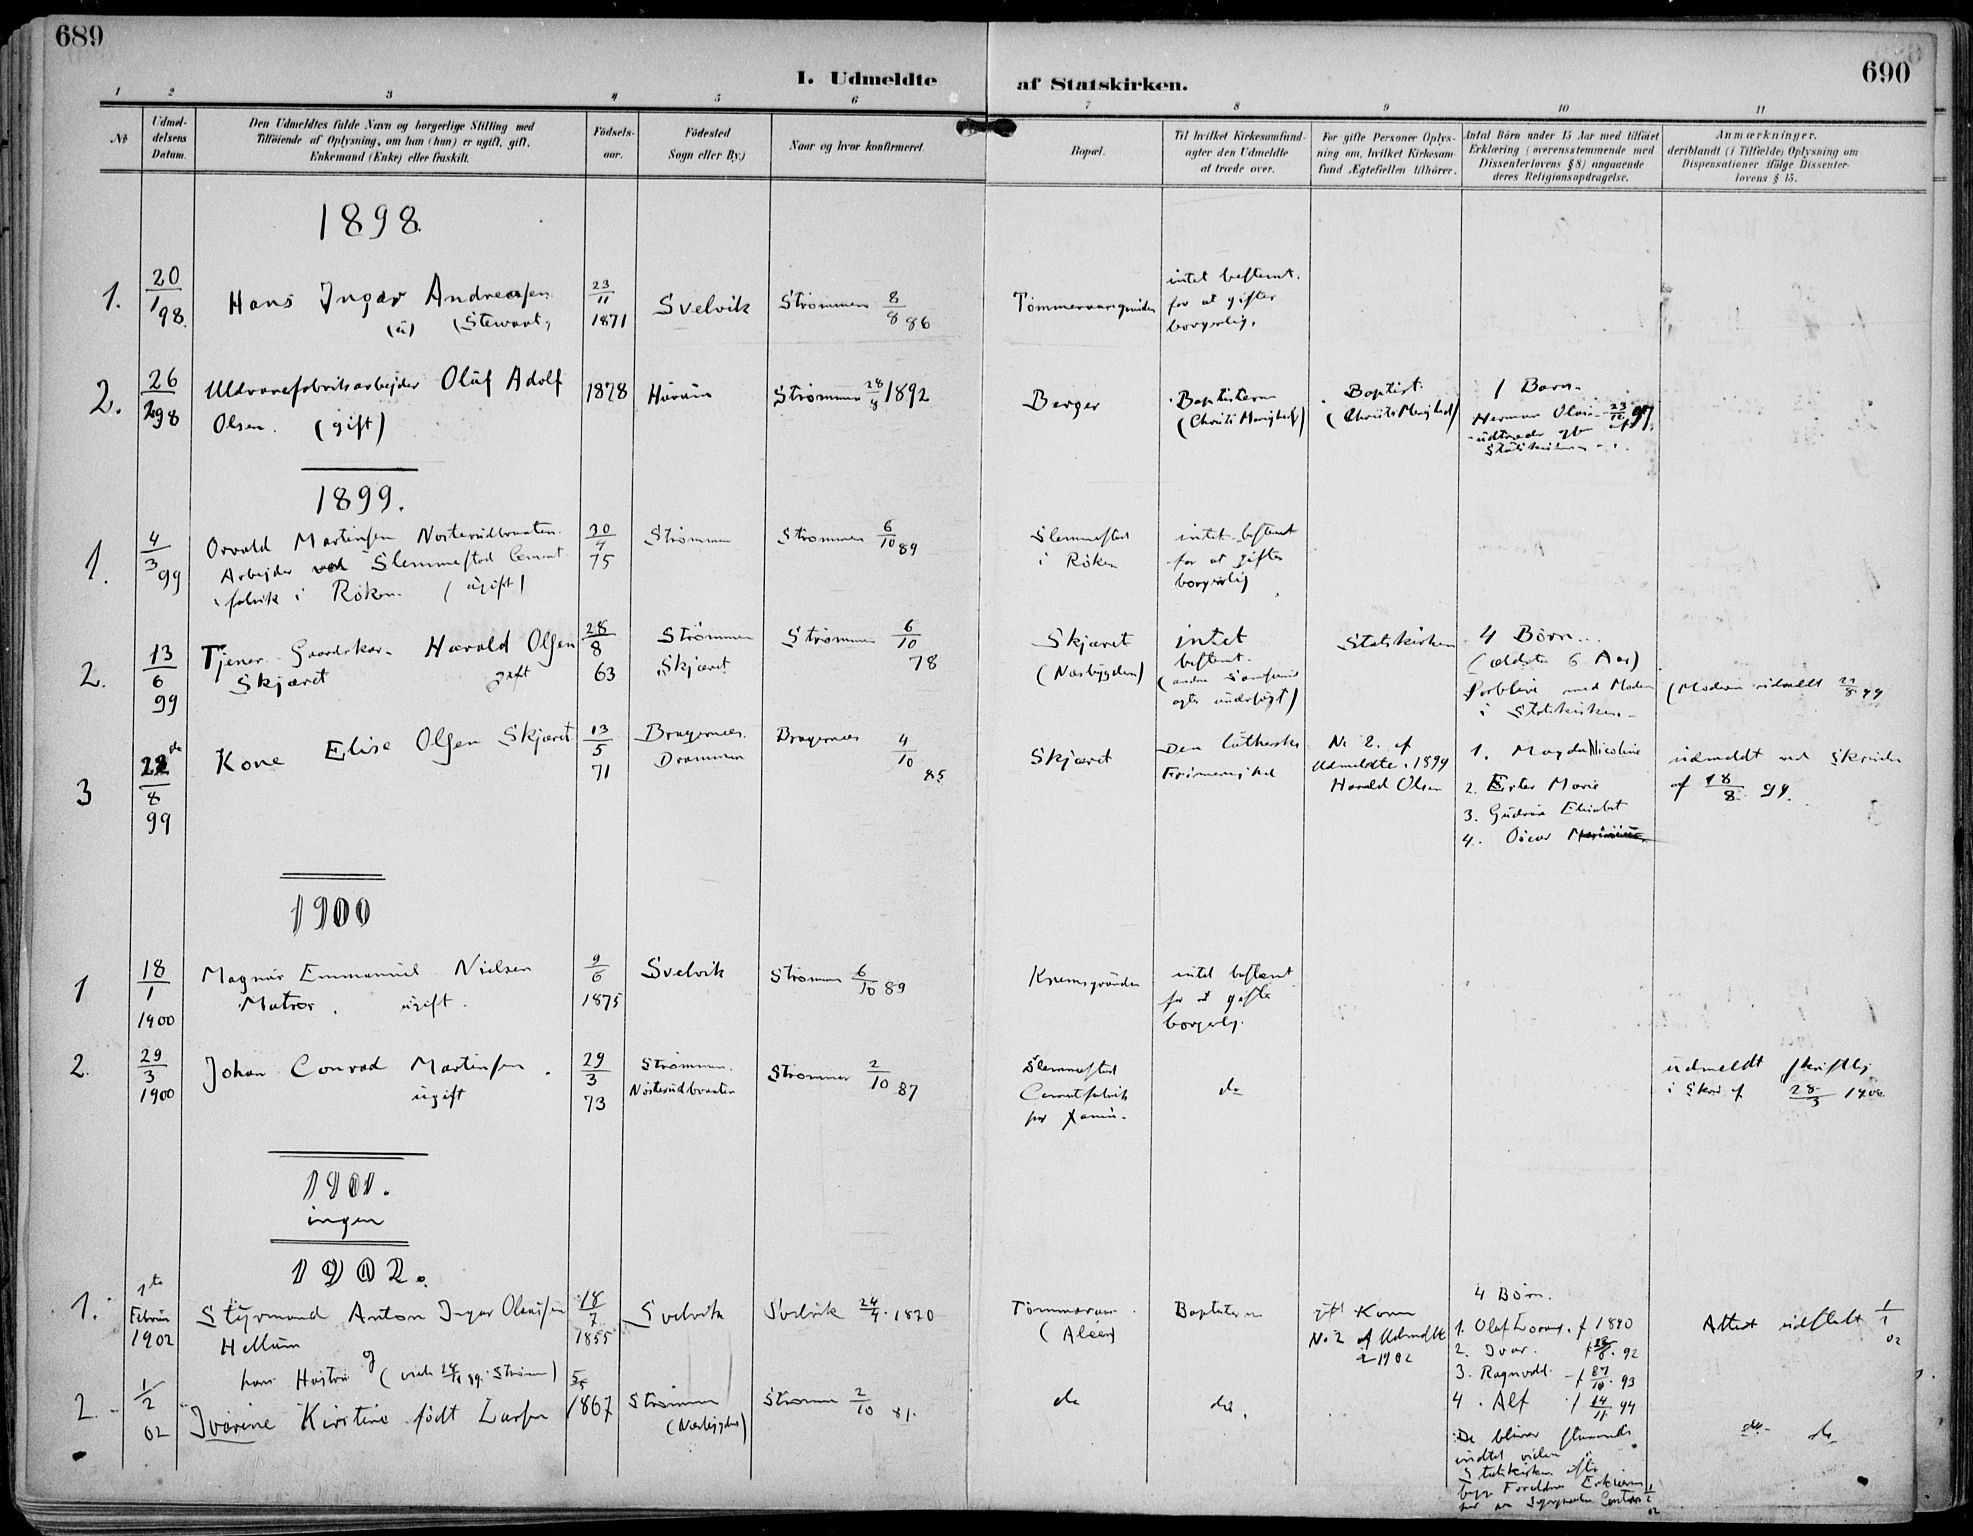 689
690
I. Udmeldte af Statskirken.
1 2 3 4 5 6 7 8 9 10 11
No
Udmel-
delsens
Datum.
Den Udmeldtes fulde Navn og borgerlige Stilling med
Tilföiende af Oplysning, om han (hun) er ugift, gift,
Enkemand (Enke) eller fraskilt.
Födsels-
aar.
Födested
Sogn eller By.)
Naar og hvor konfirmeret.
Bopæl.
Til hvilket Kirkesamfund
agter den Udmeldte
at træde over.
For gifte Personer Oplys-
ning om, hvilket Kirkesam-
fund Ægtefællen tilhörer.
Antal Börn under 15 Aar med tilföiet
Erklæring (overensstemmende med
Dissenterlovens § 8) angaaende
deres Religionsopdragelse.
Anmærkninger,
deriblandt (i Tilfælde) Oplysning om
Dispensationer ifölge Dissenter-
lovens § 15.
1898.
1.
20/1 98.
Hans Ingar Andreasen
(ü) (Stewart)
23/11 1871
Svelvik
Strømmen 8/8 86
intet bestemt.
for at giftes
borgerlig.
2.
26/2 98
Uldvarefabriksarbejder Olüf Adolf
Olsen. (gift)
1878
Strømmen 28/8 1892
Berger
Baptisterne
Baptist
1 Barn.
Herman Olsen
udtræder af
Statskirken
1899.
1.
4/3 99
Osvald Martinsen Nosterüdbraaten.
Arbejder ved Slemmestad Cement
fabrik i Røken. (ügift)
30/4 75
Strømmen
Strømmen 6/10 89
Slemmestad
i Røken
intet bestemt
for at giftes
borgerlig
2.
13/6 99
Tjener Gaardskar Harald Olsen
Skjæret gift
28/8 63
Strømmen
Skjæret
Strømmen 6/10 78
Skjæret
(Nesbygden)
intet
bestemt.
Statskirken
4 Børn..
(ældste 6 Aar)
forblive med Moder
i Statskirken
(Moderen udmeldt 22/8 99
3
22de/8 99
Kone Elise Olsen Skjæret
13/5 71
Bragernes.
Drammen
Bragernes 4/10 85
Skjæret
Den lütherske
Frimenighed
No 2. af
Udmeldte 1899
Harald Olsen
1. Magda Nicoline
2. Ester Marie
3. Güdrün Elisabet
4. Oscar
üdmeldt ved Skrivelse
af 18/8 99.
1900
1
18/1 1900
Magnus Emmanuel Nielsen
Matros. ügift.
9/6 1875
Svelvik
Strømmen 6/10 89
intet bestemt
for at gifte
borgerlig.
2.
29/3 1900
Johan Conrad Martinsen.
ügift
29/3 73
Strømmen.
Nosterüdbraaten
Strømmen 2/10 87
Slemmestad
Cementfabrik
do
üdmeldt skriftlig
i Skriv af 28/3 1900
1901.
ingen
1902.
1.
1ste
Febrüar
1902
Styrmand Anton Ingar Olaüssen
Hellum
og
18/7 1855
Svelvik
Svelvik 24/4 1870
Baptisterne
gift Kone
No 2 af Udmeldte
1902
4 Børn.
1. Olaf f 1890
2. Ivar. 92
3. Ragnvald f 27/10 93
4. Alf f 14/11 94
De bliver
indtil videre
Statskirken efter
Attest udstedt 1/2 02
2.
1/2 02
hans Hustru
Ivarine Kirstine født Larsen
1867
Strømmen
(Nesbygden)
Strømmen 2/10 81.
do
do.
do do